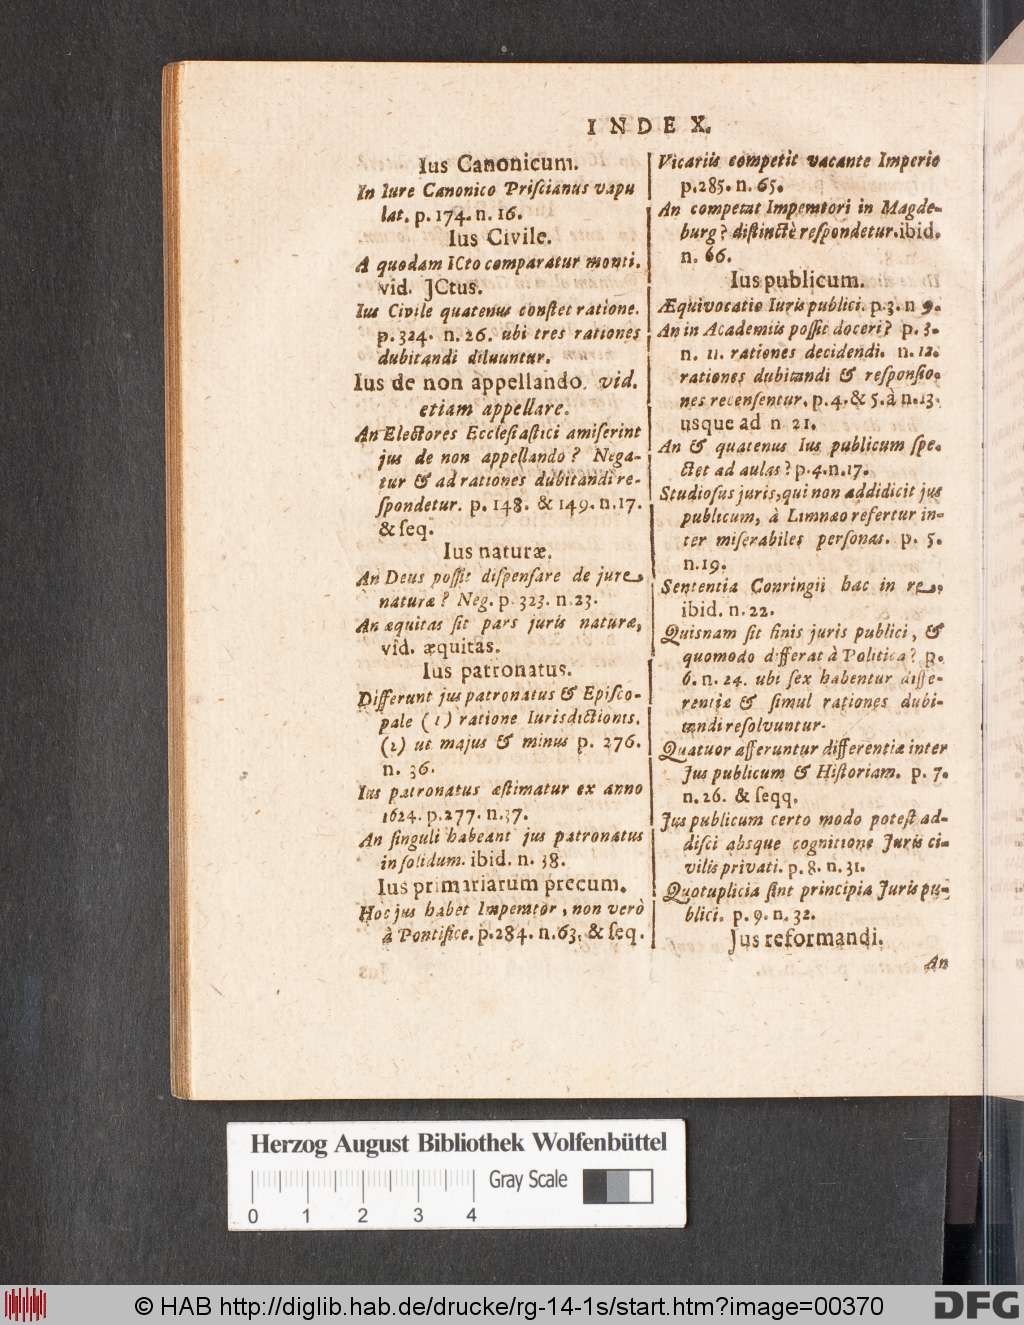 INDEX.
Ius Canonicum.
In Iure Canonico Priſcianus vapu
lat. p. 174. n. 16.
Ius Civile.
A quodam ICto comparatur monti.
vid. JCtus.
Ius Civile quatenus conſtet ratione.
p. 324. n. 26. ubi tres rationes
dubitandi diluuntur.
Ius de non appellando. vid.
etiam appellare.
An Electores Eccleſiaſtici amiſerint
jus de non appellando? Nega-
tur & ad rationes dubitandi re-
ſpondetur. p. 148. & 149. n. 17.
& ſeq.
Ius naturæ.
An Deus poſſit diſpenſare de jure
naturæ? Neg. p. 323. n. 23.
An æquitas ſit pars juris naturæ,
vid. æquitas.
Ius patronatus.
Differunt jus patronatus & Epiſco-
pale (1) ratione Iurisdictionis.
(2) ut majus & minus p. 276.
n. 36.
Ius patronatus æſtimatur ex anno
1624. p. 277. n. 37.
An ſinguli habeant jus patronatus
in ſolidum. ibid. n. 38.
Ius primariarum precum.
Hoc jus habet Imperator, non verò
à Pontifice. p. 284. n. 63. & ſeq.
Vicariis competit vacante Imperio
p. 285. n. 65.
An competat Imperatori in Magde-
burg? diſtinctè reſpondetur. ibid.
n. 66.
Ius publicum.
Æquivocatio Iuris publici. p. 3. n 9.
An in Academiis poſſit doceri? p. 3.
n. 11. rationes decidendi. n. 12.
rationes dubitandi & reſponſio-
nes recenſentur. p. 4. & 5. à n. 13.
usque ad n 21.
An & quatenus Ius publicum ſpe-
ctet ad aulas? p. 4. n. 17.
Studioſus juris, qui non addidicit jus
publicum, à Limnæo refertur in-
ter miſerabiles perſonas. p. 5.
n. 19.
Sententia Conringii hac in re,
ibid. n. 22.
Quisnam ſit finis juris publici, &
quomodo differat à Politica? p.
6. n. 24. ubi ſex habentur diffe-
rentiæ & ſimul rationes dubi-
tandi reſolvuntur.
Quatuor afferuntur differentiæ inter
Jus publicum & Hiſtoriam. p. 7.
n. 26. & ſeqq.
Jus publicum certo modo poteſt ad-
diſci absque cognitione Juris ci-
vilis privati. p. 8. n. 31.
Quotuplicia ſint principia Juris pu-
blici. p. 9. n. 32.
Jus reformandi.
An
Herzog August Bibliothek Wolfenbüttel
Gray Scale
0 1 2 3 4
© HAB http://diglib.hab.de/drucke/rg-14-1s/start.htm?image=00370
DFG